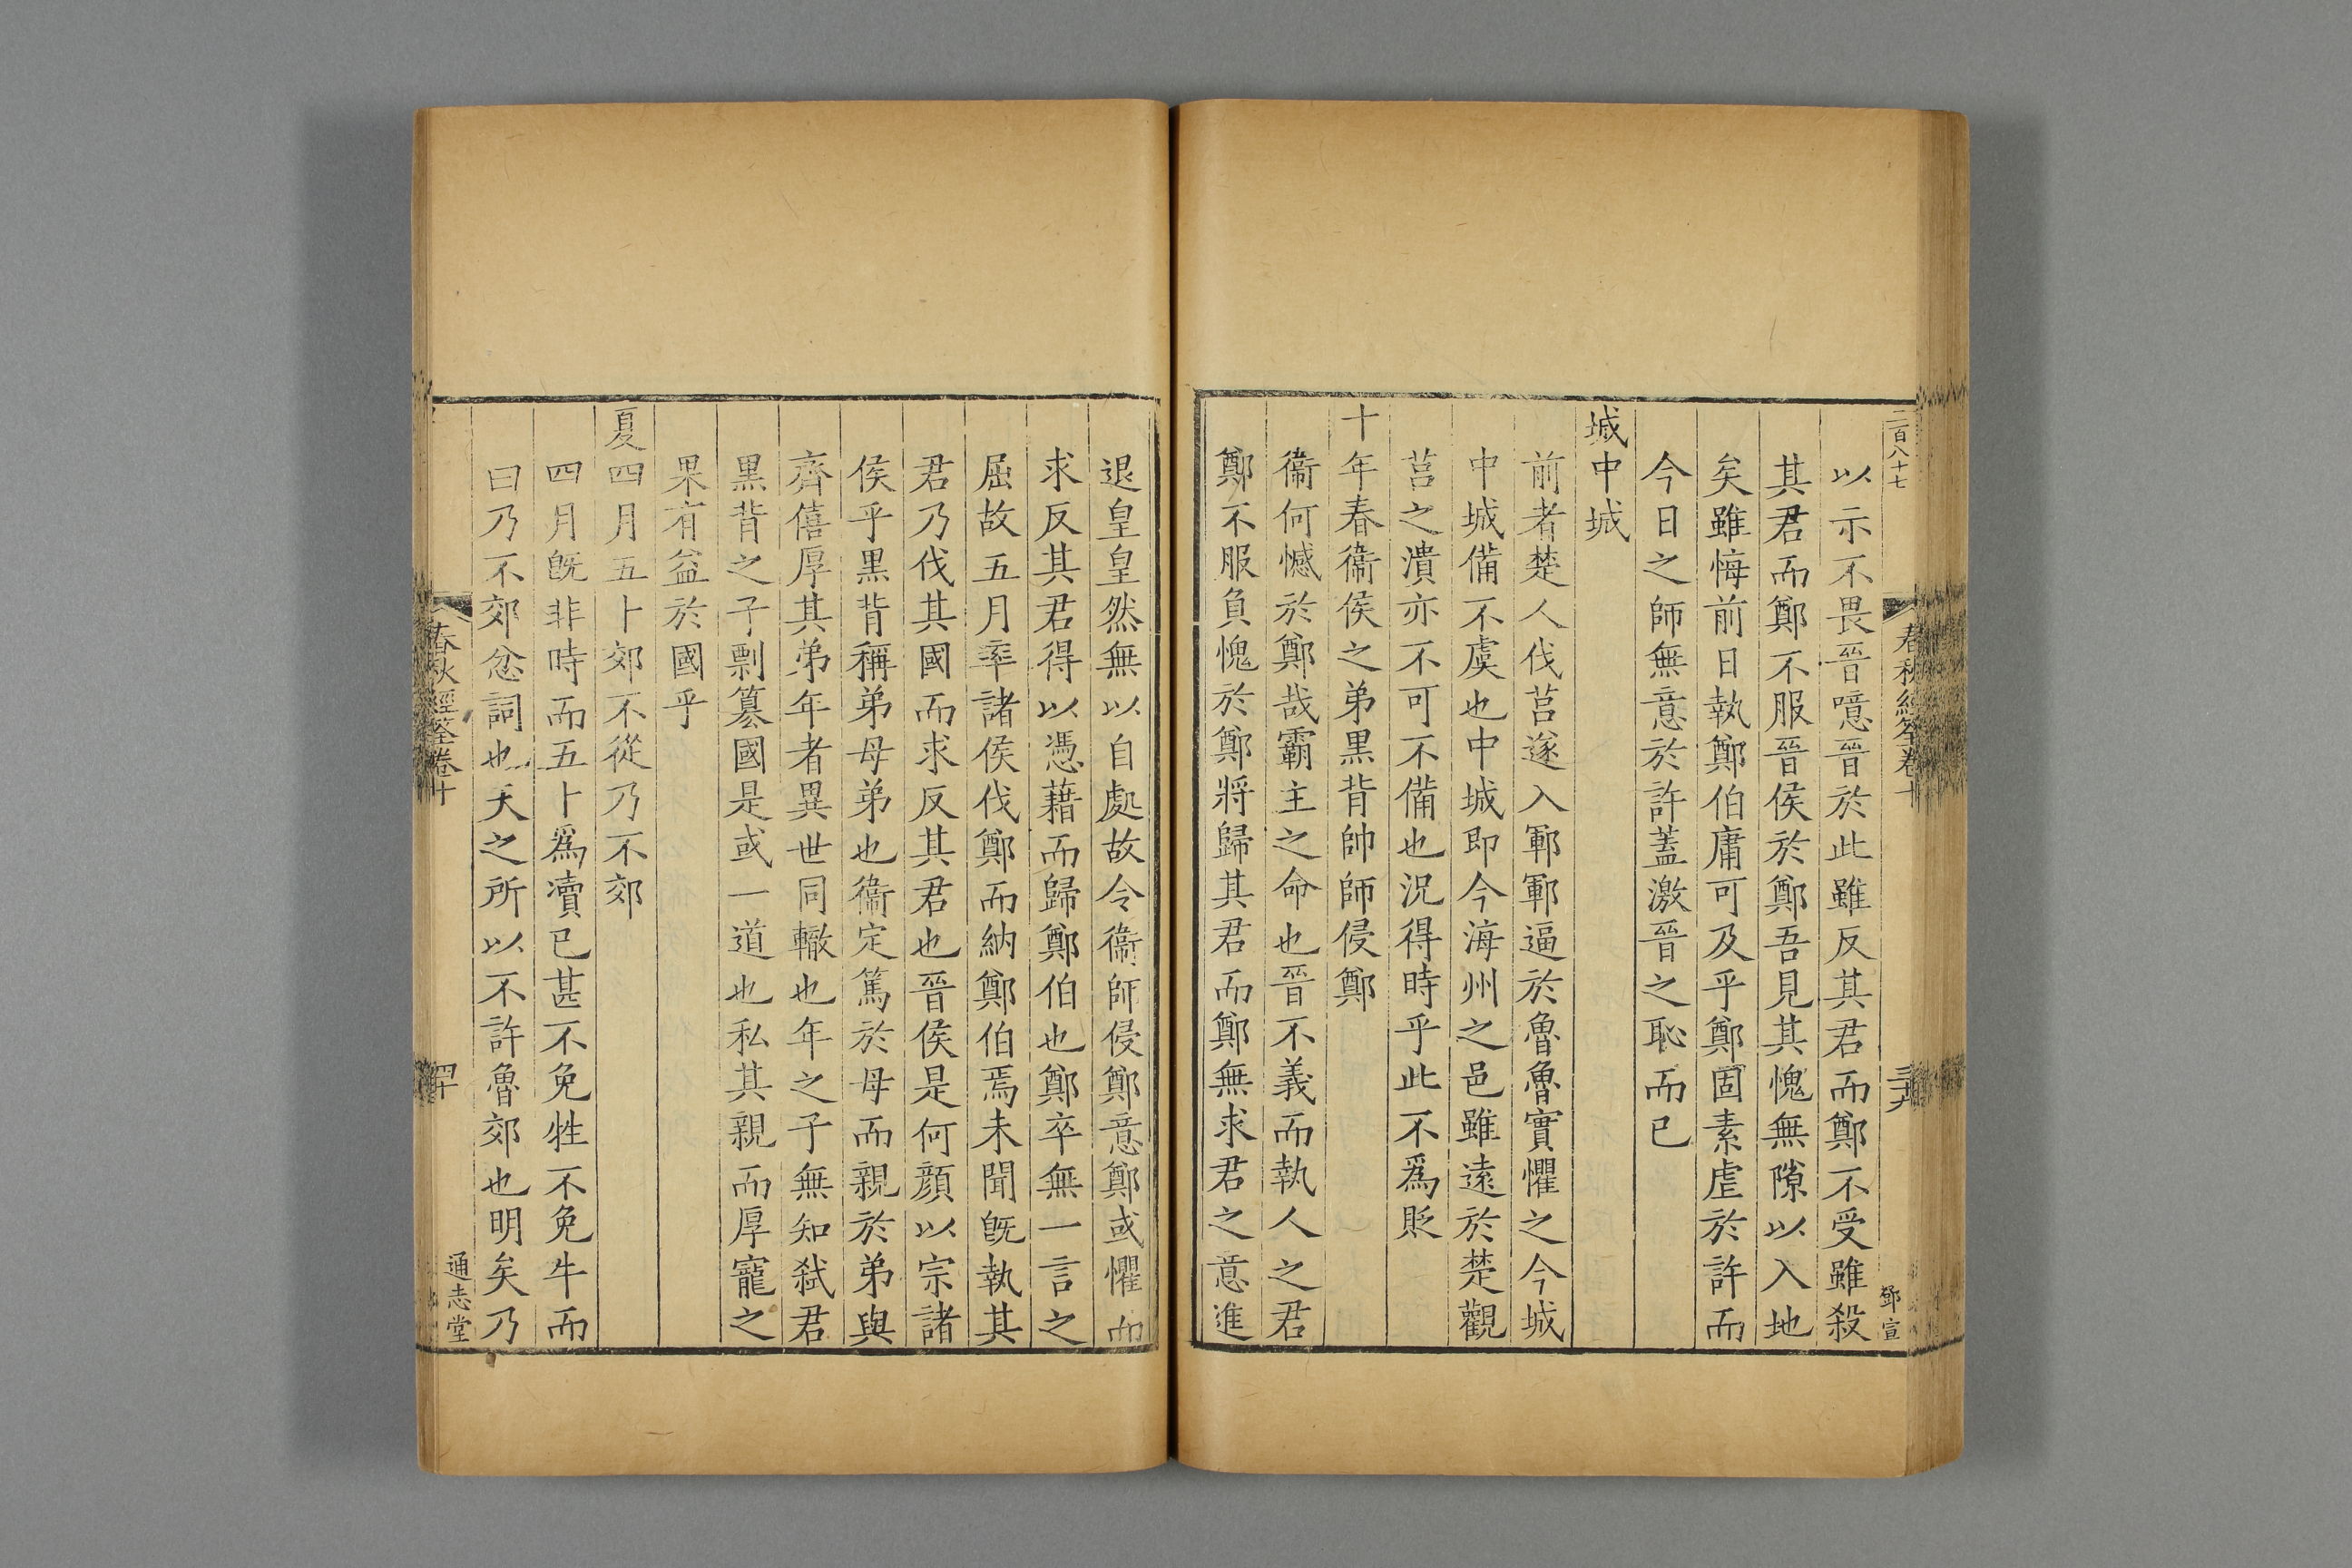 二百八十七
春秋經筌卷十
三十九
鄧宣
以示不畏晉噫晉於此雖反其君而鄭不受雖殺
其君而鄭不服晉侯於鄭吾見其愧無隙以入地
矣雖悔前日執鄭伯庸可及乎鄭固素虐於許而
今日之師無意於許蓋激晉之恥而已
城中城
前者楚人伐莒遂入鄆鄆逼於魯魯實懼之今城
中城備不虞也中城即今海州之邑雖遠於楚觀
莒之潰亦不可不備也況得時乎此不爲貶
十年春衞侯之弟黑背帥師侵鄭
衞何憾於鄭哉霸主之命也晉不義而執人之君
鄭不服負愧於鄭將歸其君而鄭無求君之意進
退皇皇然無以自處故令衞師侵鄭意鄭或懼而
求反其君得以憑藉而歸鄭伯也鄭卒無一言之
屈故五月率諸侯伐鄭而納鄭伯焉未聞旣執其
君乃伐其國而求反其君也晉侯是何顔以宗諸
侯乎黑背稱弟母弟也衞定篤於母而親於弟與
齊僖厚其弟年者異世同轍也年之子無知弑君
黑背之子剽簒國是或一道也私其親而厚寵之
果有益於國乎
夏四月五卜郊不從乃不郊
四月旣非時而五卜爲瀆已甚不免牲不免牛而
曰乃不郊忿詞也天之所以不許魯郊也明矣乃
春秋經筌卷十
四十
通志堂